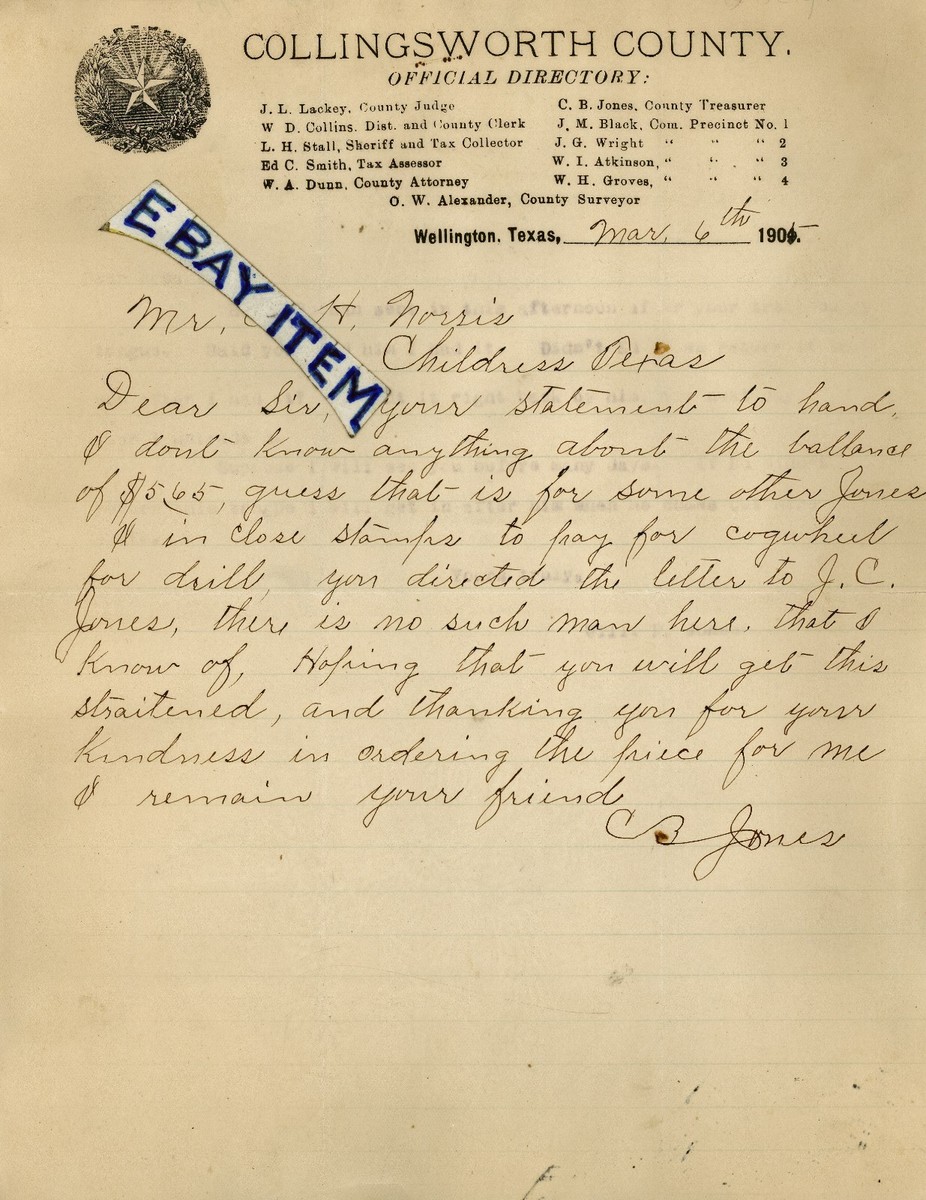 COLLINGSWORTH COUNTY.
OFFICIAL DIRECTORY:
J. L. Lackey, County Judge
W D. Collins. Dist. and County Clerk
L. H. Stall, Sheriff and Tax Collector
Ed C. Smith, Tax Assessor
W. A. Dunn, County Attorney
C. B. Jones, County Treasurer
J. M. Black, Com. Precinct No. 1
J. G. Wright " " " 2
W. I. Atkinson, " " " 3
W. H. Groves, " " " 4
O. W. Alexander, County Surveyor
Wellington, Texas, Mar. 6th 1905.
EBAY ITEM
Mr, H, Norris
Childress Texas
Dear Sir, your statement to hand,
I dont know anything about the ballance
of $565, guess that is for some other Jones
I in close stamps to pay for cogwheel
for drill, you directed the letter to J. C.
Jones, there is no such man here, that I
know of, Hoping that you will get this
straitened, and thanking you for your
kindness in ordering the piece for me
I remain your friend
C B Jones